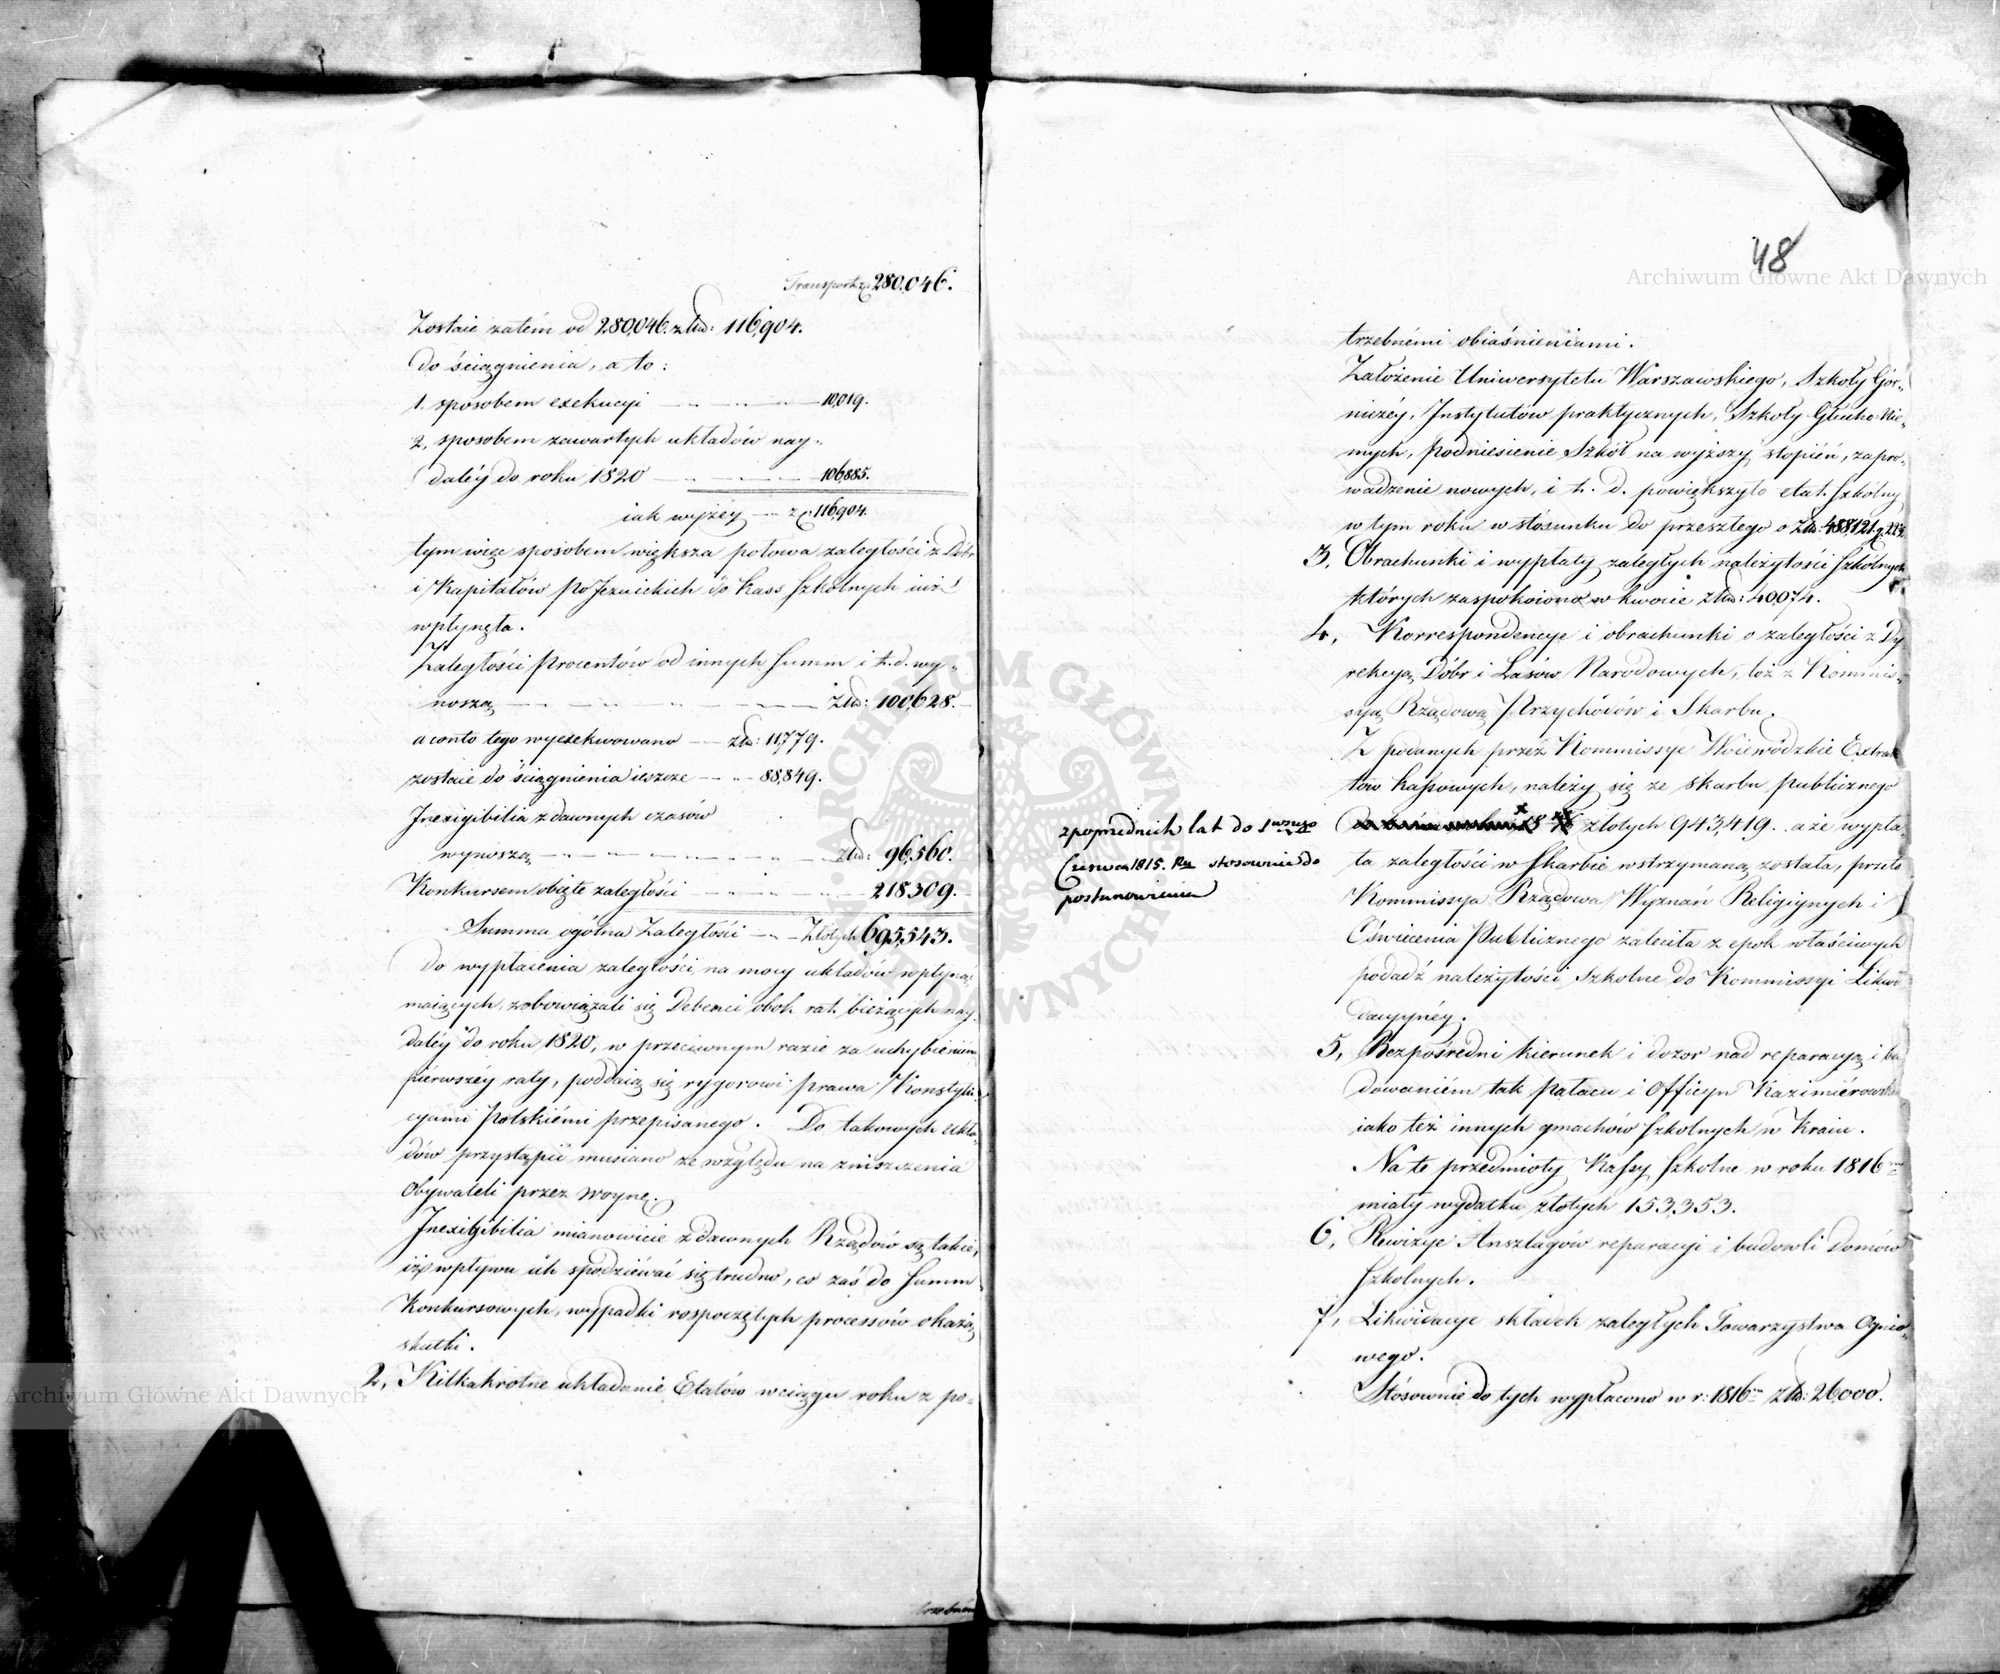 Transport zł 280,046.
Zostaie zatém od 280,046. złł: 116,904.
do ściągnienia, a to:
1. sposobem exekucyi — 10,019.
2, sposobem zawartych układów nay-
daléy do roku 1820 — 106,885.
iak wyżéy — zł 116,904.
tym więc sposobem większa połowa zaległości z Dóbr
i Kapitałów poJezuickich do kass Szkolnych iuż
wpłynęła.
Zaległości procentów od innych Summ i t. d. wy-
noszą — złł: 100,628.
a conto tego wyexekwowano — złł: 11,779.
zostaie do ściągnienia ieszcze — 88,849.
Inexigibilia z dawnych czasów
wynoszą — złł: 96,560.
Konkursem obięte zaległości — 218,309.
Summa ogólna Zaległości — Złotych 695,543.
Do wypłacenia zaległości, na mocy układów wpłynąć
maiących, zobowiązali się Debenci obok rat bieżących nay-
daléy do roku 1820, w przeciwnym razie za uchybieniem
pierwszéy raty, poddaią się rygorowi prawa Konstytu-
cyami Polskiémi przepisanego. Do takowych ukła-
dów przystąpić musiano ze względu na zniszczenia
Obywateli przez woynę.
Inexigibilia mianowicie z dawnych Rządów są takie,
iż wpływu ich spodziéwać się trudno, co zaś do Summ
Konkursowych, wypadki rospoczętych processów okażą
skutki.
2, Kilkakrotne układanie Etatów w ciągu roku z po-
trzebném
48
trzebnémi obiaśnieniami.
Założenie Uniwersytetu Warszawskiego, Szkoły Gór-
niczéy, Instytutów praktycznych, Szkoły Głucho-Nie-
mych, podniesienie Szkół na wyższy stopień, zapro-
wadzenie nowych, i t. d. powiększyło etat Szkolny
w tym roku w stosunku do przeszłego o złł: 488,121
3, Obrachunki i wypłaty zaległych należytości Szkólnych
których zaspokoiono w kwocie złł: 40,074.
4, Korrespondencye i obrachunki o zaległości z Dy-
rekcyą Dóbr i Lasów Narodowych, toż z Kommis-
syą Rządową Przychodów i Skarbu.
Z podanych przez Kommissye Woiewódzkie Extrak-
tów kassowych, należy się ze skarbu publicznego
z poprzednich lat do 1 wszego
Czerwca 1815. Ru stosownie do
postanowienia
złotych 943,419. a że wypła-
ta zaległości w Skarbie wstrzymaną została, przeto
Kommissya Rządowa Wyznań Religiynych i
Oświecenia Publicznego zaleciła z epok właściwych
podadź należytości Szkolne do Kommissyi Likwi-
dacyynéy.
5, Bezpośredni kierunek i dozor nad reparacyą i bu-
dowaniém tak Pałacu i Officyn Kazimiérowskich
iako też innych gmachów Szkolnych w Kraiu.
Na te przedmioty Kassy Szkolne w roku 1816
miały wydatku złotych 153,353.
6, Rewizye Anszlagów reparacyi i budowli domów
Szkolnych.
7, Likwidacye składek zaległych Towarzystwa Ognio-
wego.
Stósownie do tych wypłacono w r: 1816 złł: 26,000.
Archiwum Główne Akt Dawnych
Archiwum Główne Akt Dawnych
ARCHIWUM GŁÓWNE AKT DAWNYCH